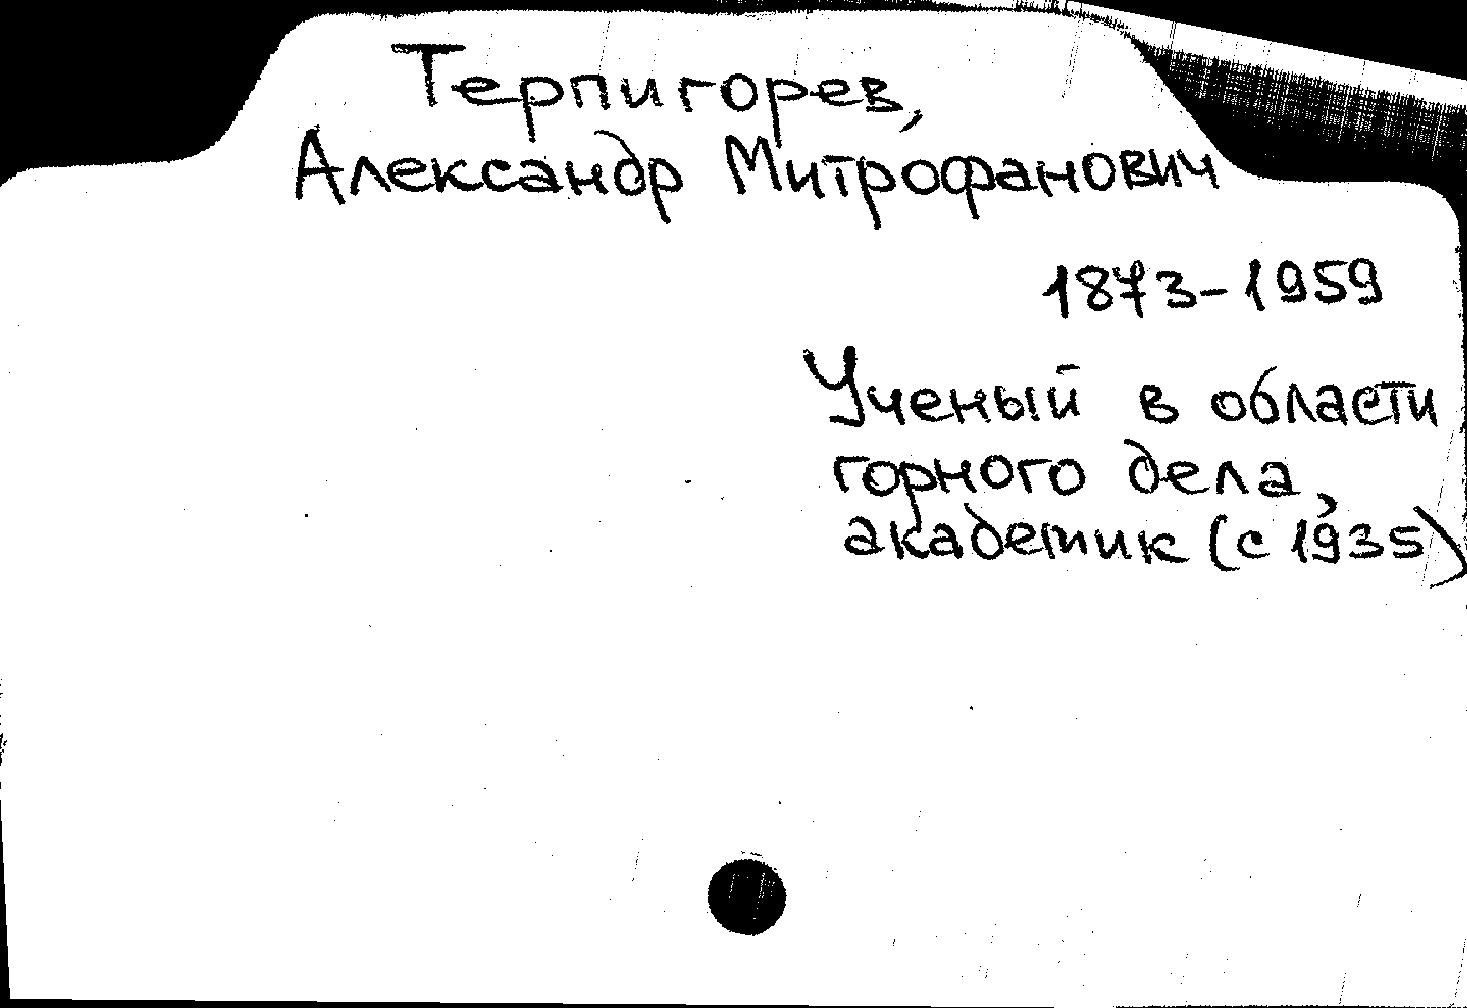 Терпигорев,
Александр Митрофанович
1873-1959
Ученый в области
горного дела,
академик (с 1935)